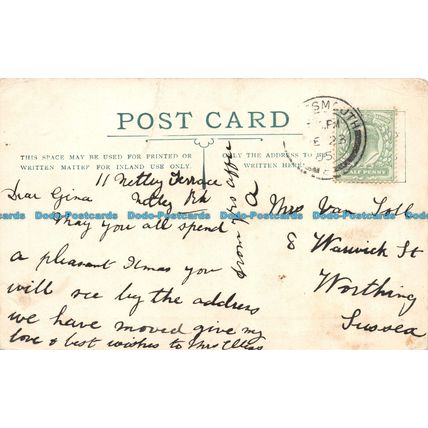 POST CARD
THIS SPACE MAY BE USED FOR PRINTED OR
WRITTEN MATTER FOR INLAND USE ONLY.
ONLY THE ADDRESS TO
WRITTEN HERE
SMOUTH
HALF PENNY
11 Netley Terrace
Netley
Dear Gina
May you all spend
a pleasant Xmas you
will see by the address
we have moved give my
love & best wishes to Mrs
from
A
Mrs Van
8 Warwick St
Worthing
Sussex
Dodo-Postcards Dodo-Postcards Dodo-Postcards Dodo-Postcards